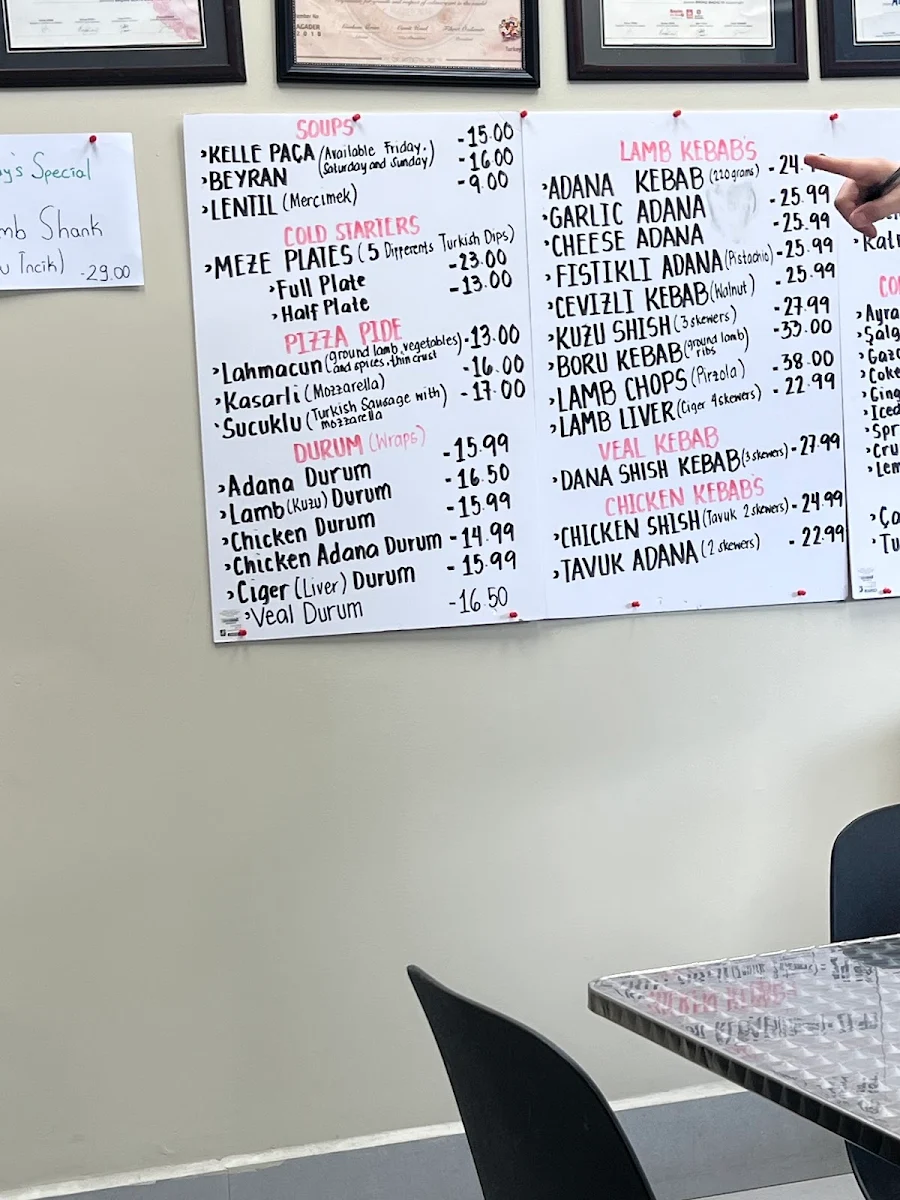 Special
Shank
Incik)
-29.00
SOUPS
›KELLE PAÇA (Available Friday, Saturday and Sunday) -15.00
›BEYRAN -16.00
›LENTIL (Mercimek) -9.00
COLD STARTERS
›MEZE PLATES (5 Differents Turkish Dips)
›Full Plate -23.00
›Half Plate -13.00
PIZZA PIDE
›Lahmacun (ground lamb, vegetables) -13.00
and spices, thin crust
›Kasarli (Mozzarella) -16.00
›Sucuklu (Turkish Sausage with) -17.00
mozzarella
DURUM (Wraps)
›Adana Durum -15.99
›Lamb (Kuzu) Durum -16.50
›Chicken Durum -15.99
›Chicken Adana Durum -14.99
›Ciger (Liver) Durum -15.99
›Veal Durum -16.50
LAMB KEBAB'S
›ADANA KEBAB (220 grams) -24.
›GARLIC ADANA -25.99
›CHEESE ADANA -25.99
›FISTIKLI ADANA (Pistachio) -25.99
›CEVIZLI KEBAB (Walnut) -25.99
›KUZU SHISH (3 skewers) -27.99
›BORU KEBAB (ground lamb) -33.00
ribs
›LAMB CHOPS (Pirzola) -38.00
›LAMB LIVER (Ciger 4 skewers) -22.99
VEAL KEBAB
›DANA SHISH KEBAB (3 skewers) -27.99
CHICKEN KEBAB'S
›CHICKEN SHISH (Tavuk 2 skewers) -24.99
›TAVUK ADANA (2 skewers) -22.99
›Ayra
›Şalg
›Gazo
›Coke
›Ging
›Iced
›Spr
›Cru
›Lem
›Ça
›Tu